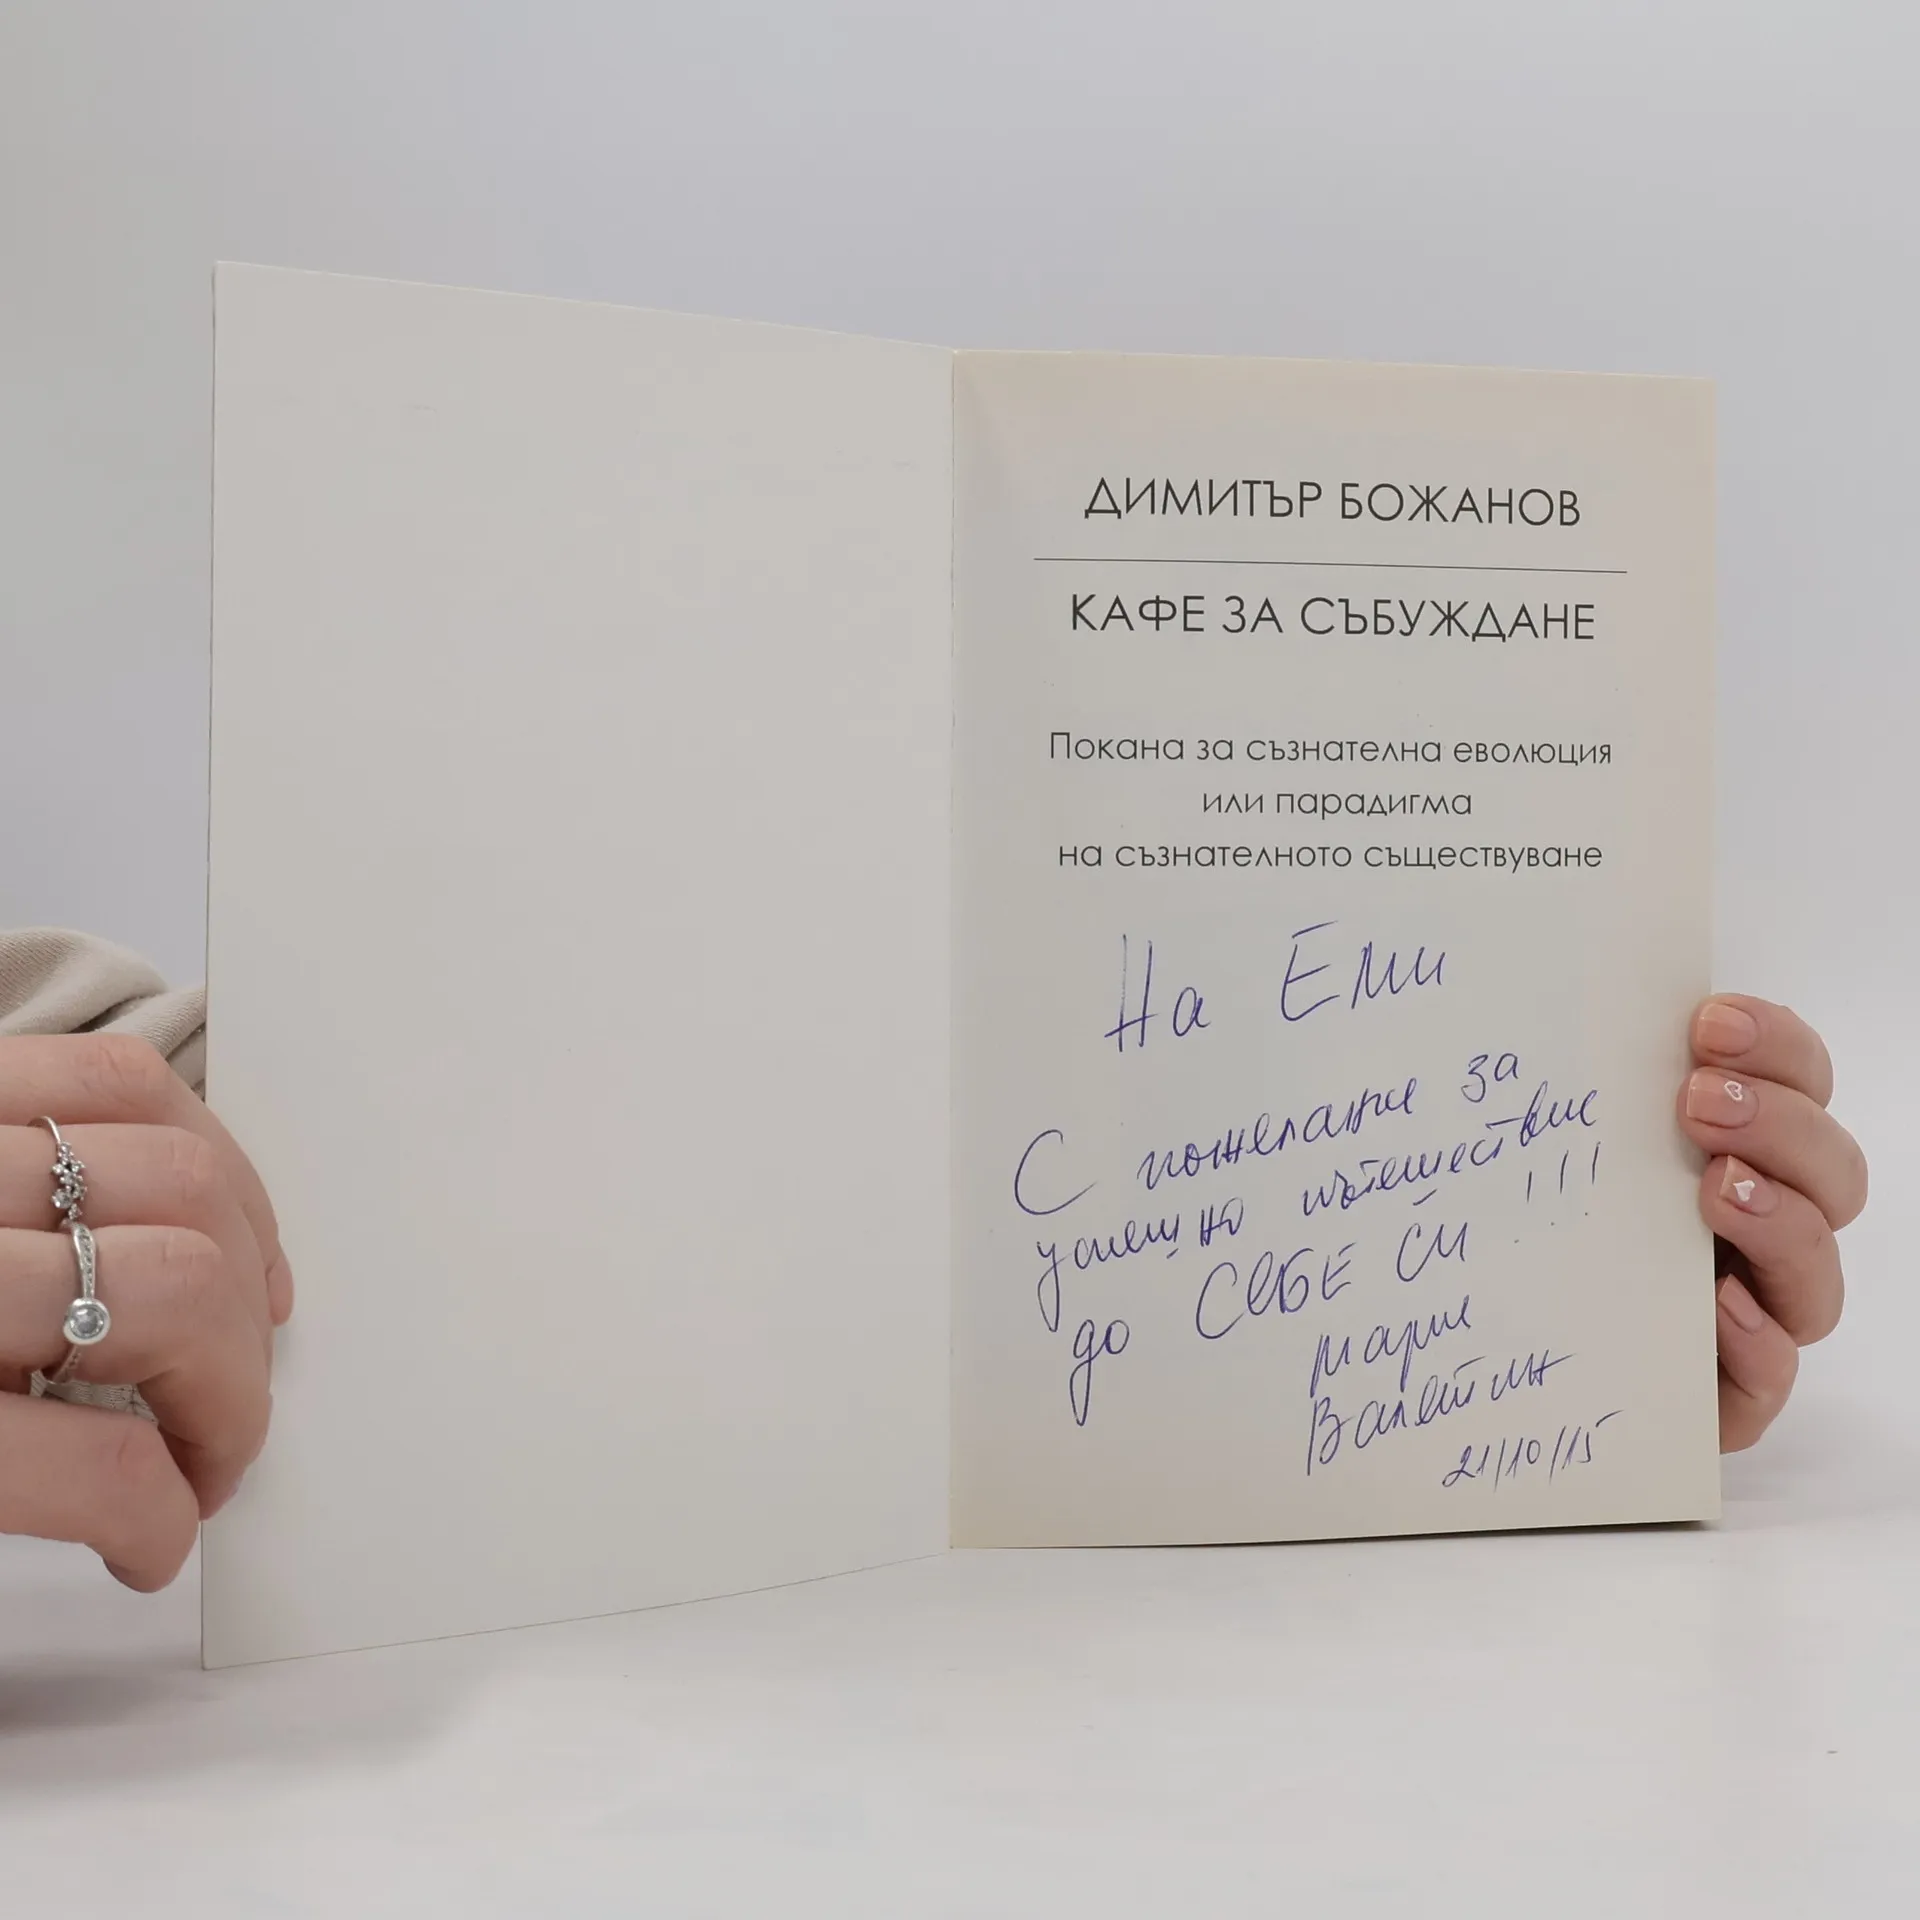 ДИМИТЪР БОЖАНОВ
КАФЕ ЗА СЪБУЖДАНЕ
Покана за съзнателна еволюция
или парадигма
на съзнателното съществуване
На Еми
С пожелание за
успешно пътешествие
до СЕБЕ СИ !!!
Мария
Валентин
21/10/15